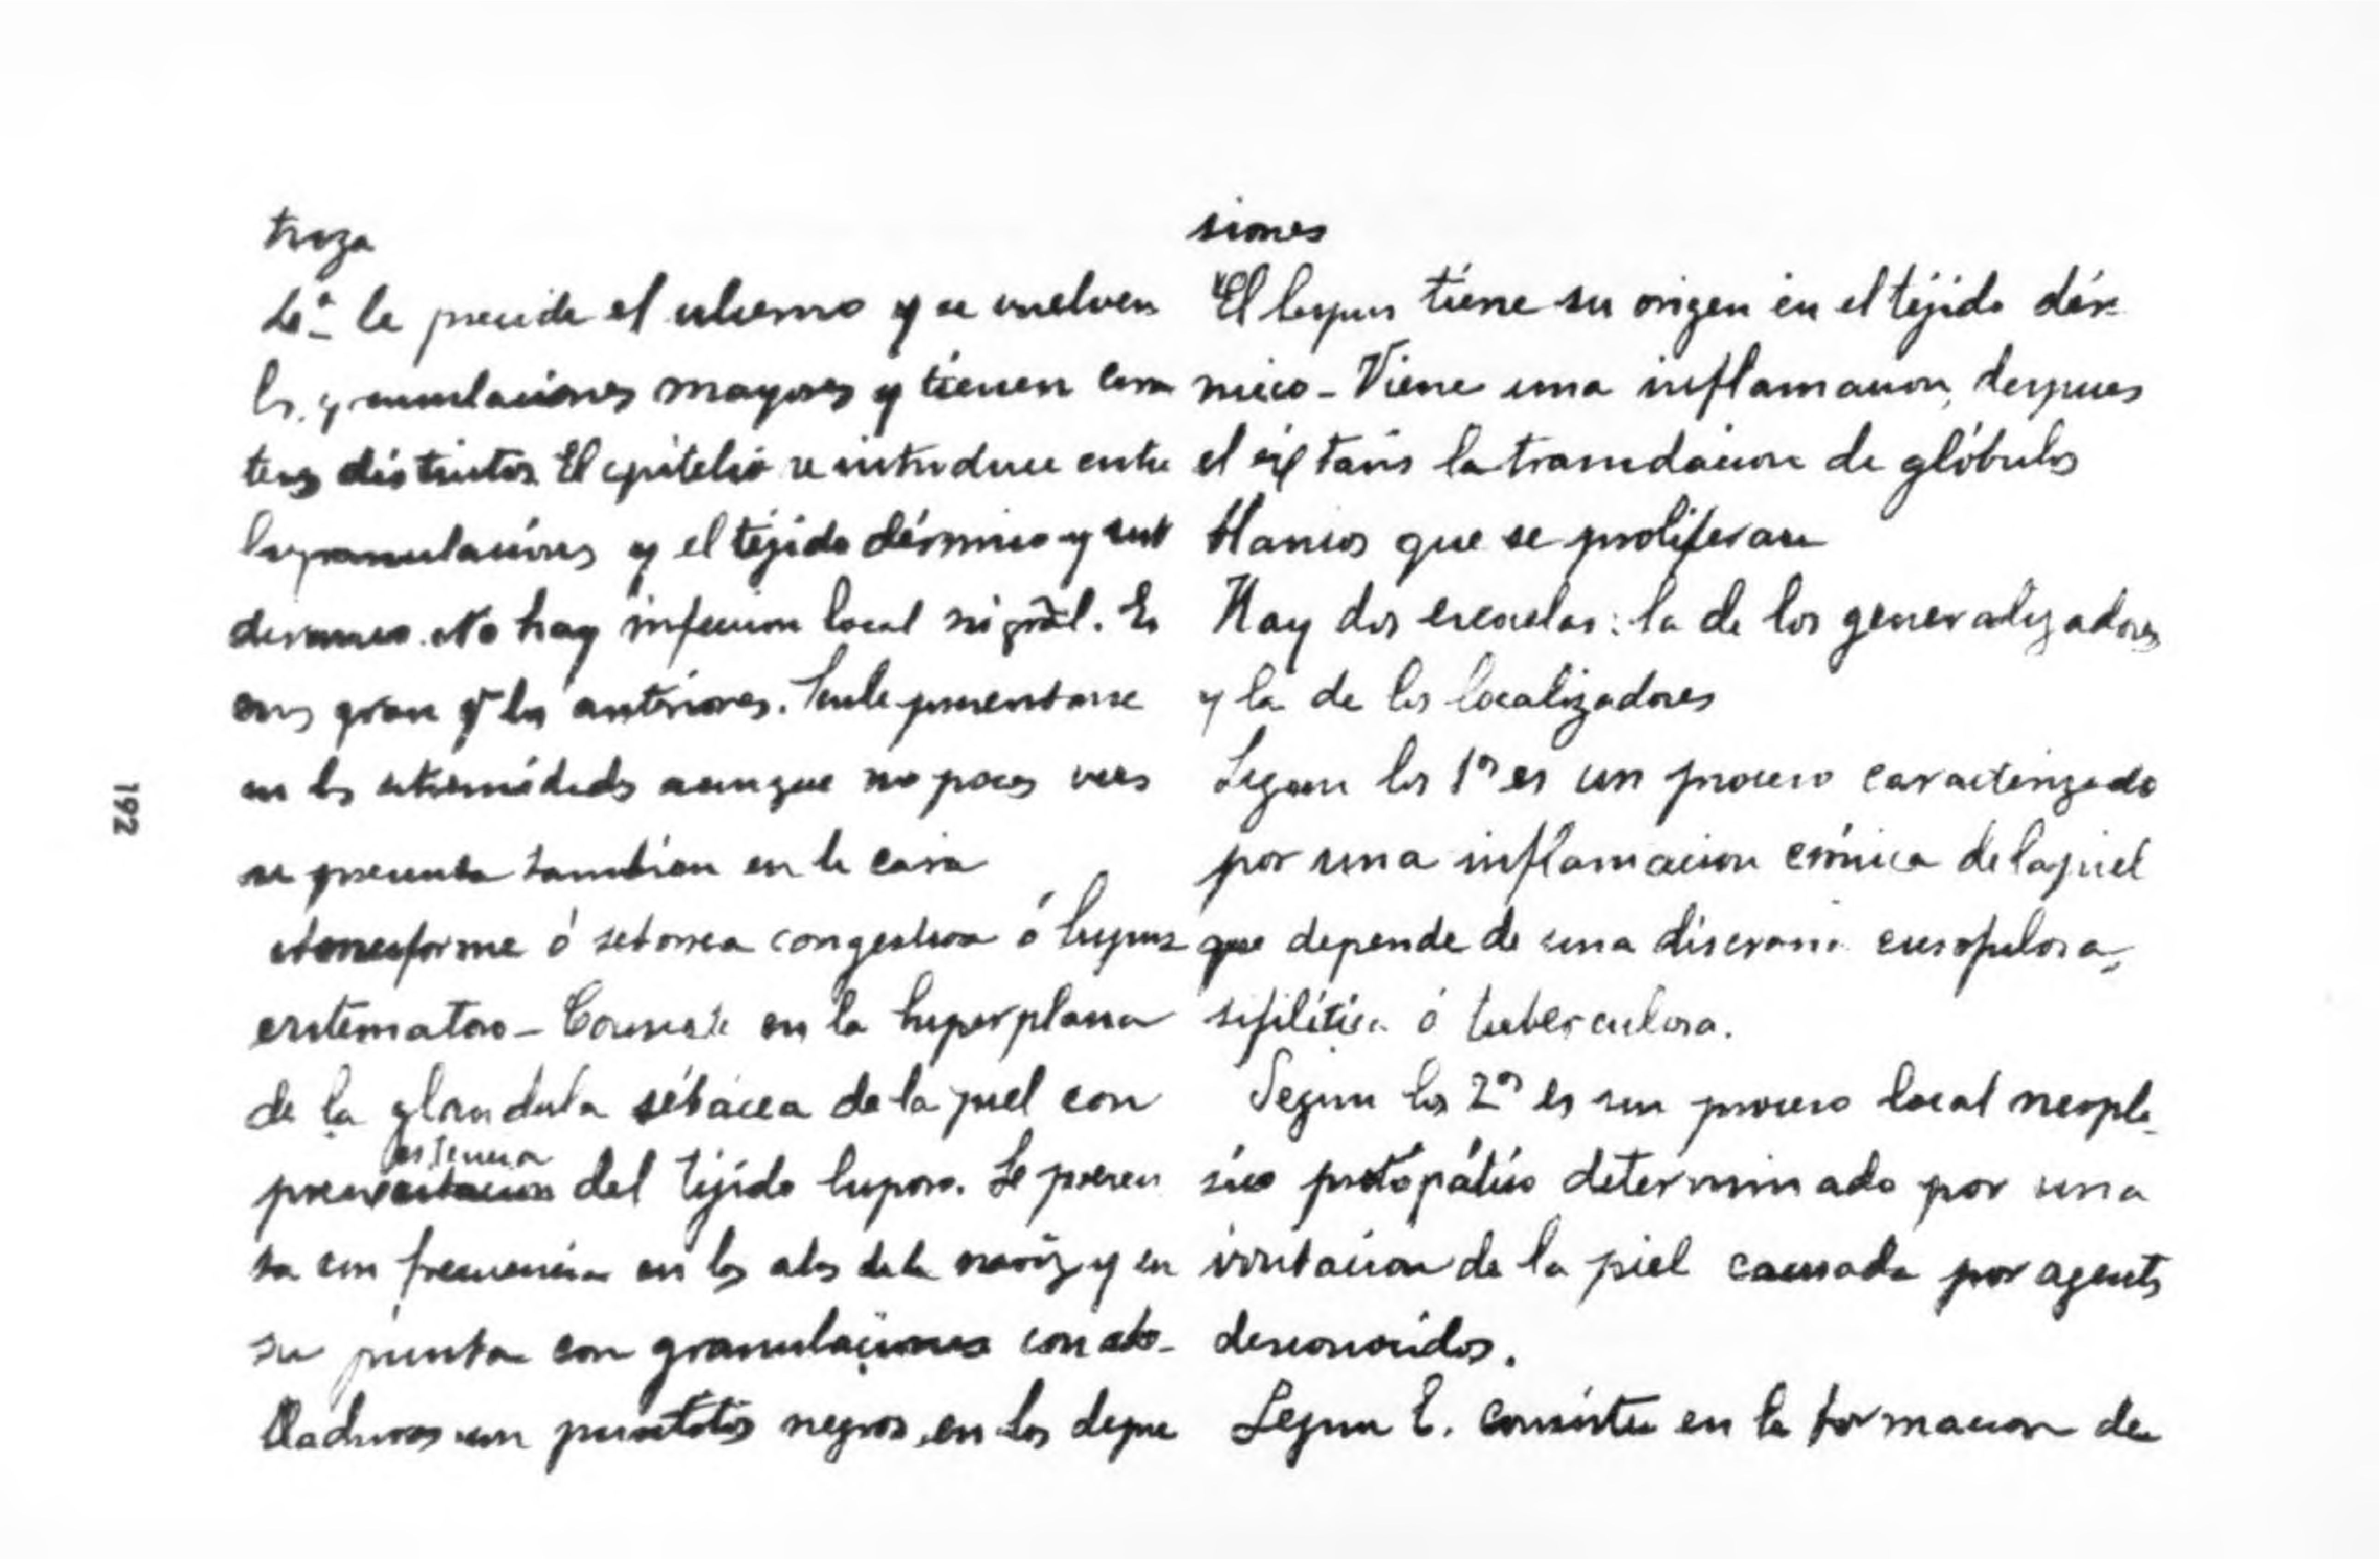 troza
La 2ª le precede el ulcemo y se vuelven
las granulaciones mayores y tienen carac
teres distintos. El epitelio se introduce entre
las granulaciones y el tejido dérmico y sub
dermico. No hay infeccion local ni gral. Es
mas grave q̃ las anteriores. Suele presentarse
en las extremidades aunque no pocas veces
se presenta tambien en la cara
ó seborrea congestiva ó lupus
eritematoso - Consiste en la hiperplasia
de la glandula sebácea de la piel con
persistencia
presentacion del tejido luposo. Se presen
ta con frecuencia en las alas de la nariz y en
su punta con granulaciones con abo-
lladuras con puntitos negros, en los depre
siones
El lupus tiene su origen en el tejido dér-
mico - Viene una inflamacion, despues
el éxtasis la trasudacion de glóbulos
blancos que se proliferan
Hay dos escuelas: la de los generalizadores
y la de los localizadores
Segun los 1os es un proceso caracterizado
por una inflamacion crónica de la piel
que depende de una discrasia escrofulosa,
sifilitica ó tuberculosa.
Segun los 2os es un proceso local neoplá
sico protopático determinado por una
irritacion de la piel causada por agents
desconocidos.
Segun E. consiste en la formacion de
192